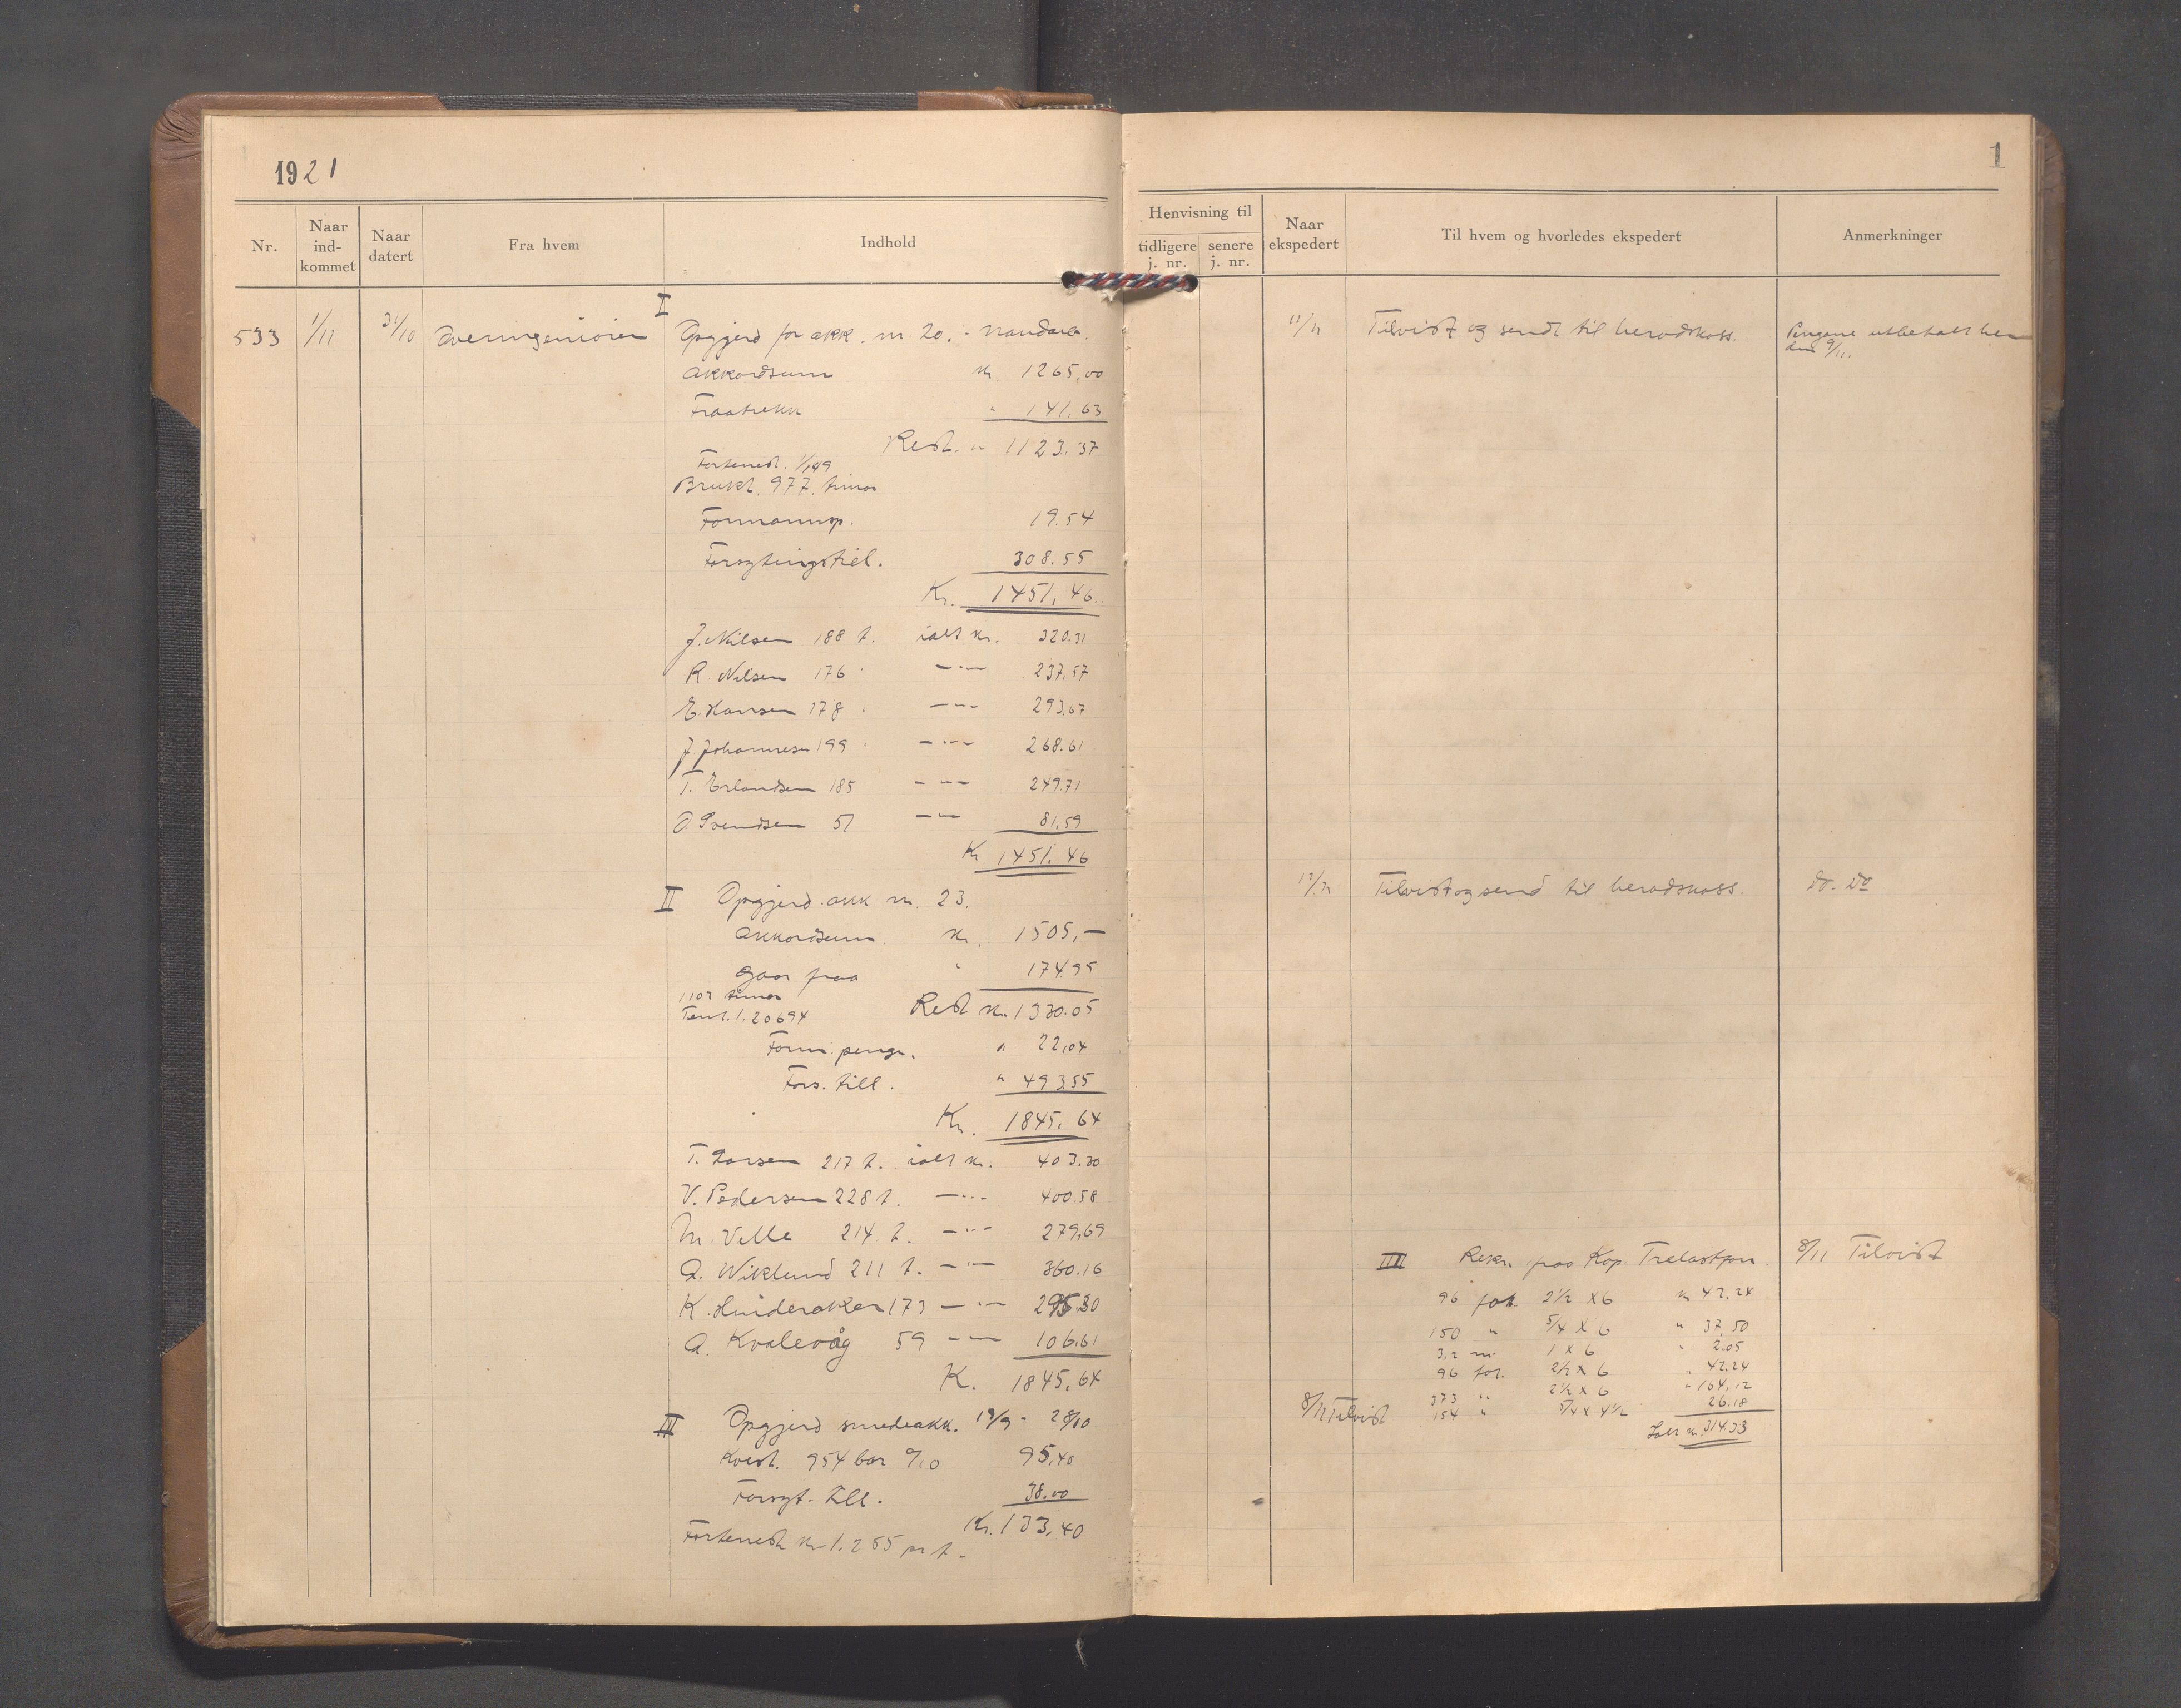 1921
Nr.
Naar ind-kommet
Naar datert
Fra hvem
Indhold
533 1/11 31/10 Overingeniøren
I
Opgjerd for akk. nr. 20.
Akkordsum kr. 1265,00
Fraatrekk " 141,63
Rest. " 1123,37
Fortenest. 1/149
Brukt. 977. timar
Formannsp. 19.54
Forsytingstil. 308.55
Kr. 1451,46.
J. Nilsen 188 t. ialt kr. 320.31
R. Nilsen 176 " —"— 237,57
E. Hansen 178 " —"— 293,67
J Johannesen 199 " —"— 268.61
T. Erlandsen 185 —"— 249.71
O. Svendsen 51 —"— 81,59
Kr 1451,46
II Opgjerd akk nr. 23.
Akkordsum kr. 1505,—
Gaar fraa " 174,95
1102 timar
Tent. 1.20694
Rest kr. 1330.05
Form. penge. " 22,04
Fors. till. " 493,55
Kr. 1845,64
T. Larsen 217 t. ialt kr. 403.30
V. Pedersen 228 t. —"— 400.58
M. Velle 214 t. —"— 279,69
A. Wiklund 211 t. —"— 360.16
K. Hinderaker 173 —"— 295.30
A. Kvalevåg 59 —"— 106,61
K. 1845,64
III Opgjerd smedeakk. 19/9 - 28/10
Kvest. 954 bor 0/10 95,40
Forsyt. till. 38.00
Kr. 133,40
Fortenest kr 1.255 pr t.
1
Henvisning til
tidligere j. nr.
senere j. nr.
Naar ekspedert
Til hvem og hvorledes ekspedert
Anmerkninger
11/11 Tilvist og sendt til heradskass. Pengane utbetalt her
den 9/11.
11/11 Tilvist og send til heradskass. do. do
IIII Rekn. fraa Kop. Trelastforr. 8/11 Tilvist
96 fot. 2½ x 6 kr 42.24
150 " 5/4 x 6 " 37,50
3,2 m 1 x 6 " 2.05
96 fot. 2½ x 6 " 42.24
373 " 2½ x 6 " 164,12
8/11 Tilvist 154 " 5/4 x 4½ 26.18
Ialt kr. 314.33